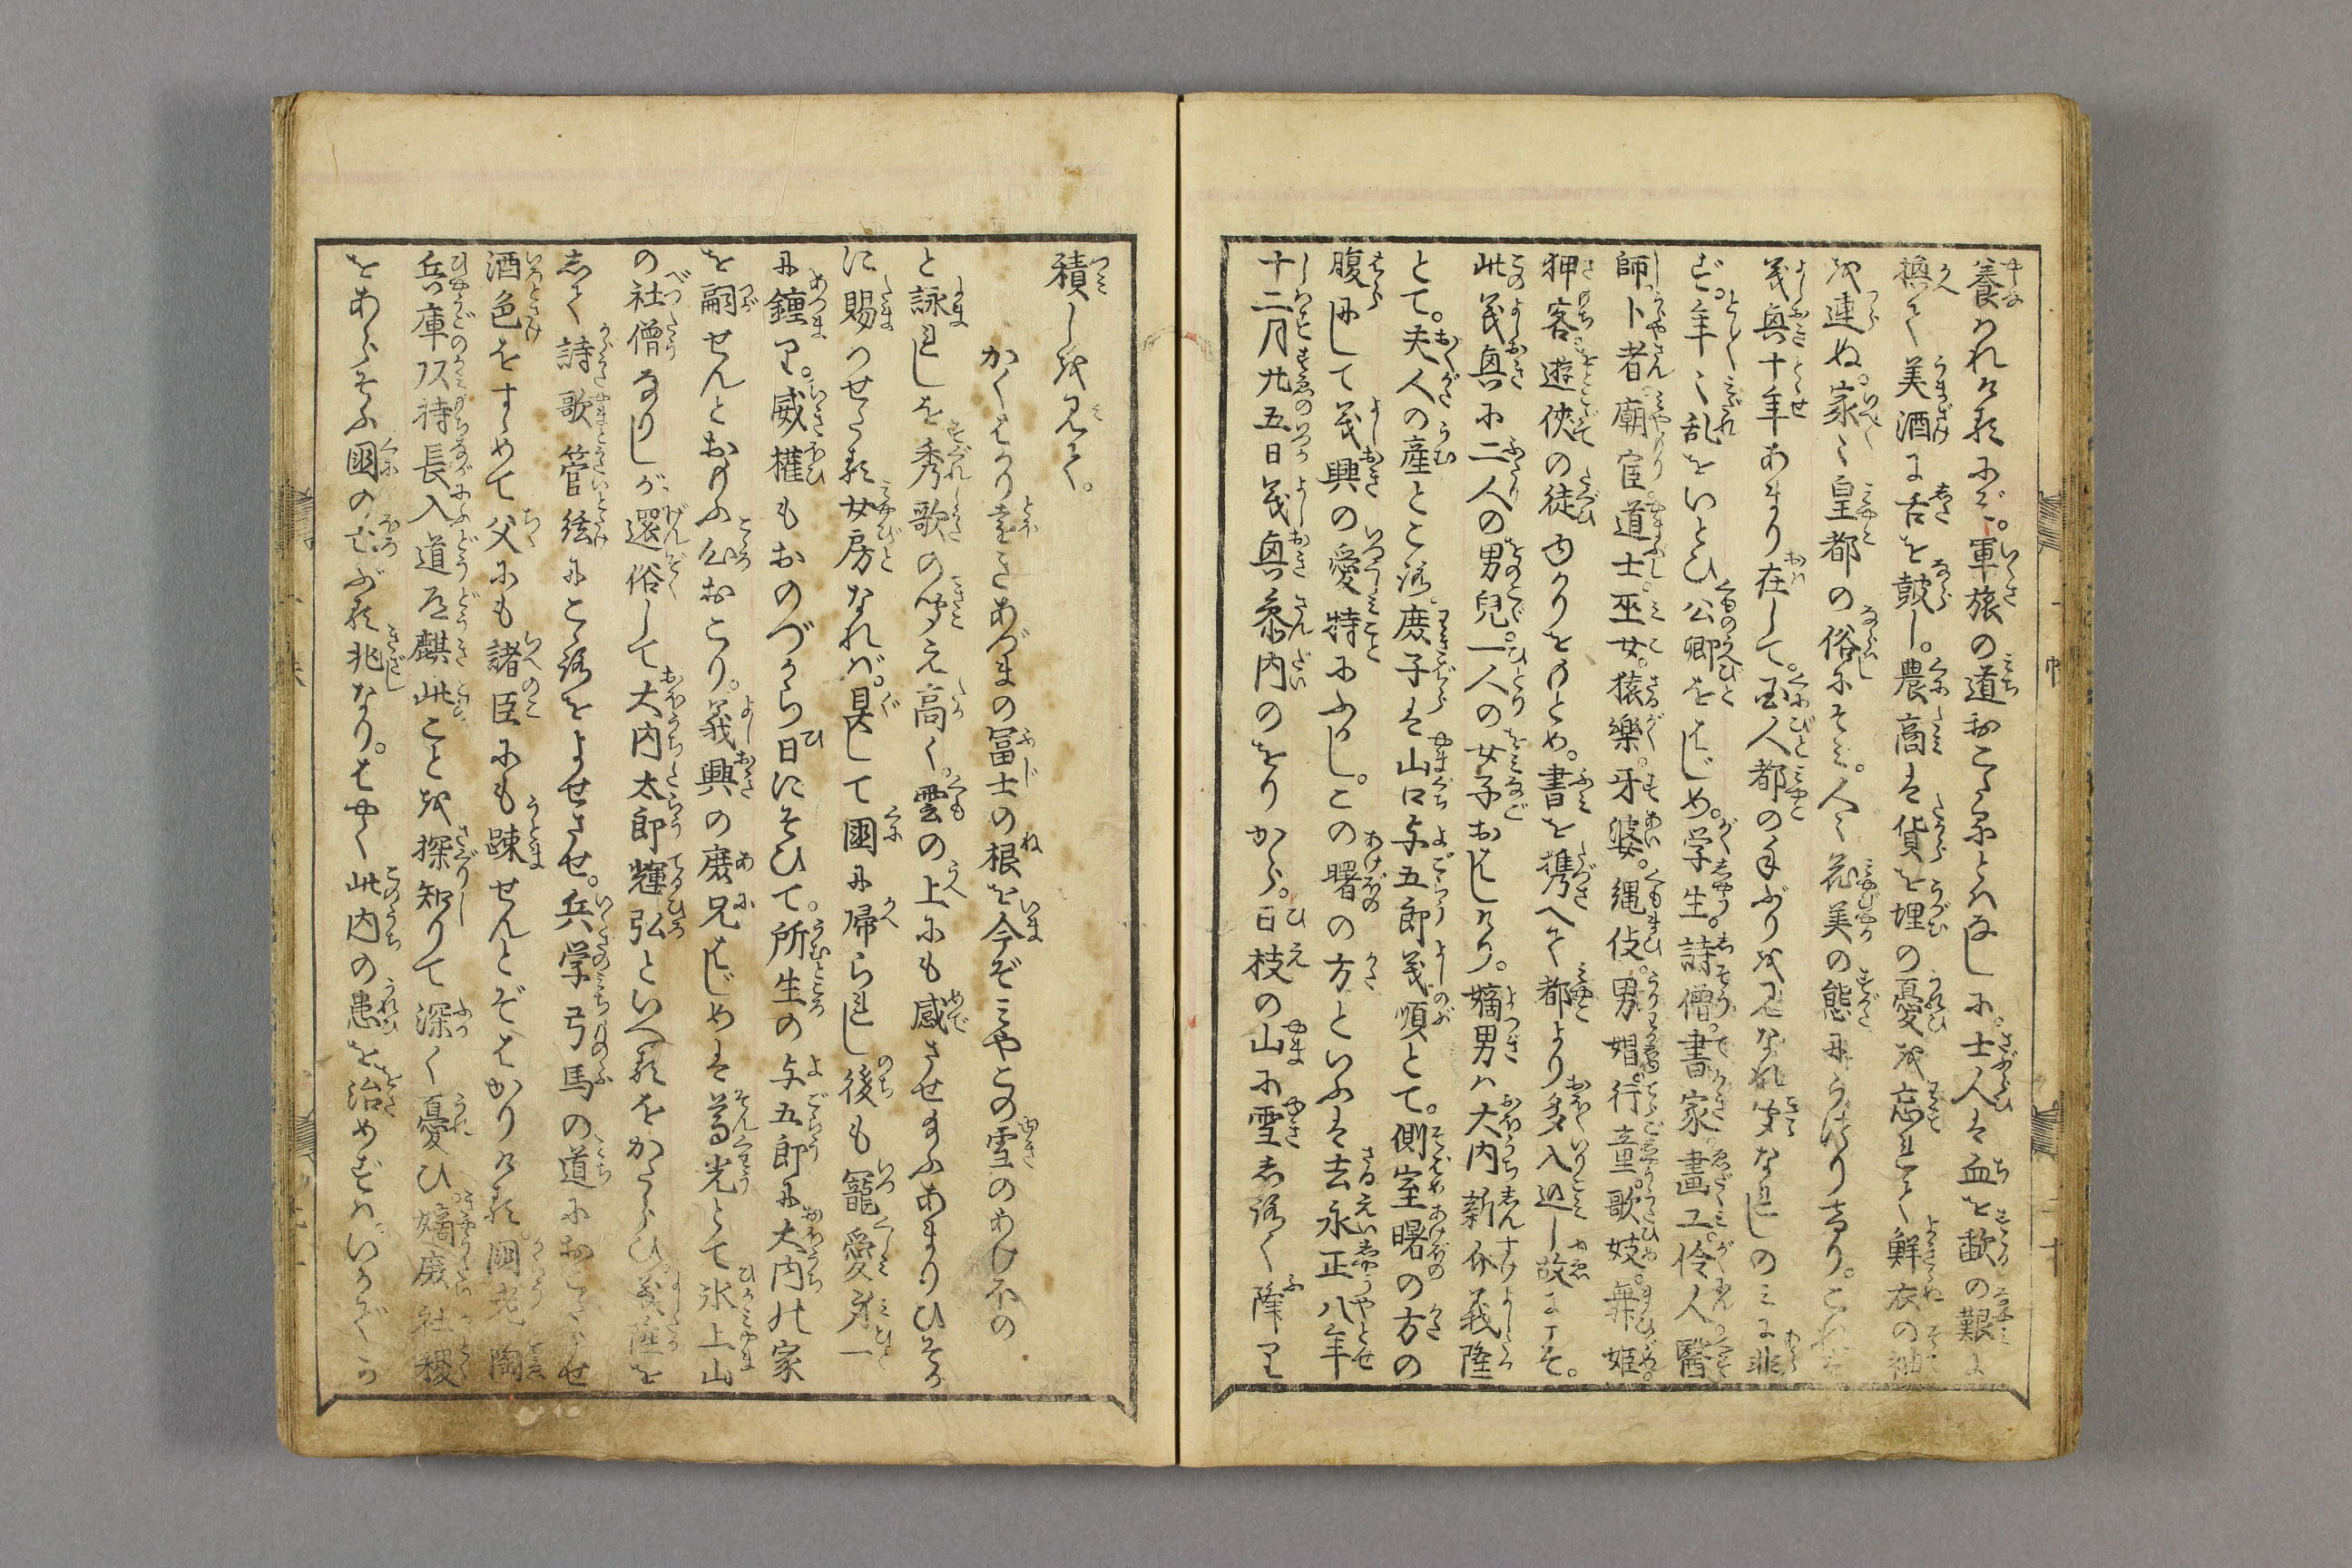 養れけるにぞ。軍旅の道おこたるとはなしに。士人は血を歃の艱に
換て美酒に舌を鼓し。農商は貨を埋の憂を忘れて鮮衣の袖
を連ぬ。家〻皇都の俗にそみ。人〻花美の態にうつりけり。これは
義興十年あまり在して。国人都の手ぶりを見なれ聞なれしのみに非
ず。年〻乱をいとひ公卿をはじめ。学生。詩僧。書家。畫工。伶人。醫
師。卜者。廟宦。道士。巫女。猿樂。牙婆。縄伎。男娼。行童。歌妓。舞姫。
狎客。遊侠の徒ゆかりをもとめ。書を携へて都より多入込し故にこそ。
此義興に二人の男兒。一人の女子おはしけり。嫡男は大内新介義隆
とて。夫人の産ところ。庶子は山口与五郎義順とて。側室曙の方の
腹にして義興の愛特にふかし。この曙の方といふは去永正八年
十二月廿五日義興参内のをりから。日枝の山に雪しろく降り
積しを見て。
かくばかり遠きあづまの冨士の根を今ぞみやこの雪のあけぼの
と詠れしを秀歌の聞え高く。雲の上にも感させ玉ふあまりひそか
に賜つせたる女房なれば。具して國に帰られし後も寵愛身一
に鍾り。威権もおのづから日にそひて。所生の与五郎に大内の家
を嗣せんとおもふ心おこり。義興の庶兄はじめは尊光とて氷上山
の社僧なりしが還俗して大内太郎輝弘といへるをかたらひ。義隆を
して詩歌管絃にこゝろをよせさせ。兵学弓馬の道におこたらせ
酒色をすゝめて父にも諸臣にも踈せんとぞはかりける。國老陶
兵庫頭持長入道道麒此ことを探知りて深く憂ひ。嫡庶社稷
をあらそふ國の亡ぶる兆なり。はやく此内の患を治めずは。いかでか